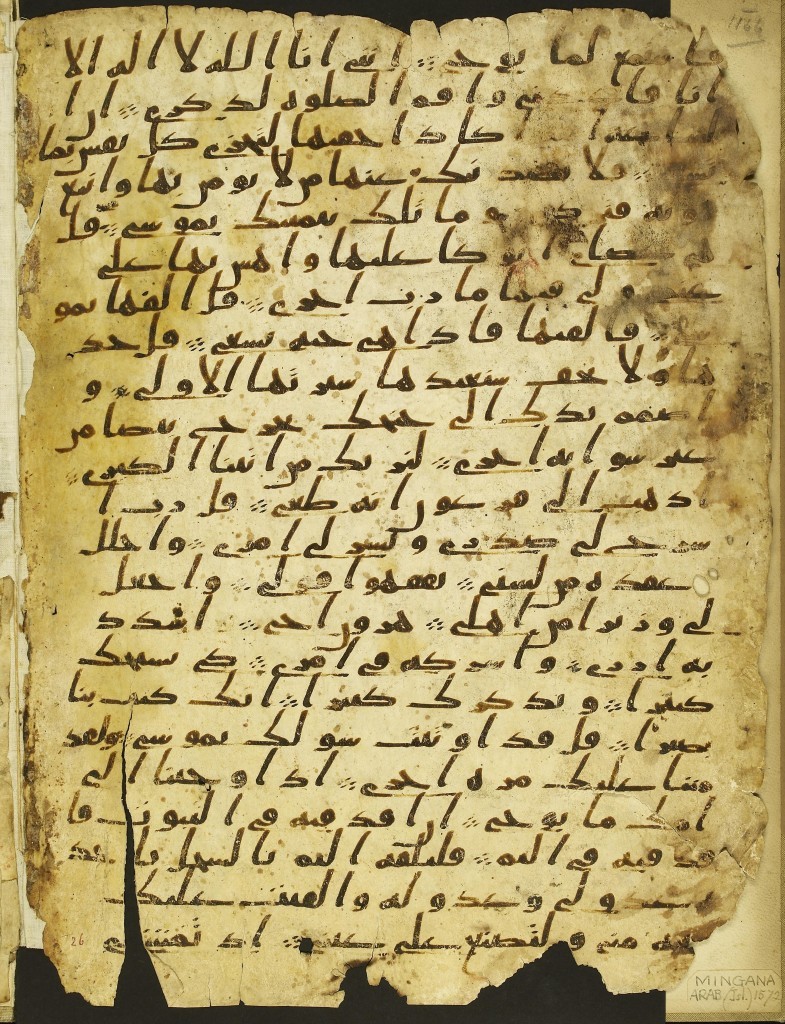 فاستمع لما يوحى ۝ اننى انا الله لا اله الا
انا فاعبدنى واقم الصلوه لذكرى ۝ ان ا
لساعه اكاد اخفيها لتجزى كل نفس بما
تسعى ۝ فلا يصدنك عنها من لا يومن بها واتبع
هويه فتردى ۝ وما تلك بيمينك يموسى ۝ قل
هى عصاى اتوكا عليها واهش بها على
غنمى ولى فيها مارب اخرى ۝ قل القها يمو
سى ۝ فالقيها فاذا هى حيه تسعى ۝ قل خذ
ها ولا تخف سنعيدها سيرتها الاولى ۝ و
اضمم يدك الى جنحك تخرج بيضا من
غير سو ايه اخرى ۝ لنريك من ايتنا الكبرى ۝
اذهب الى فرعون انه طغى ۝ قل رب ا
شرح لى صدرى ويسر لى امرى ۝ واحلل
عقده من لسنى ۝ يفقهوا قولى ۝ واجعل
لى وزيرا من اهلى ۝ هرون اخى ۝ اشدد
به ازرى ۝ واشركه فى امرى ۝ كى نسبحك
كثيرا ۝ ونذكرك كثيرا ۝ انك كنت بنا
بصيرا ۝ قل قد اوتيت سولك يموسى ۝ ولقد
مننا عليك مره اخرى ۝ اذ اوحينا الى
امك ما يوحى ۝ ان اقذفيه فى التبوت فا
قذفيه فى اليم ۝ فليلقه اليم بالسحل ياخذ
ه عدو لى وعدو له والقيت عليك
محبه منى ولتصنع على عينى ۝ اذ تمشى
26
MINGANA
ARAB. (Isl.) 1572